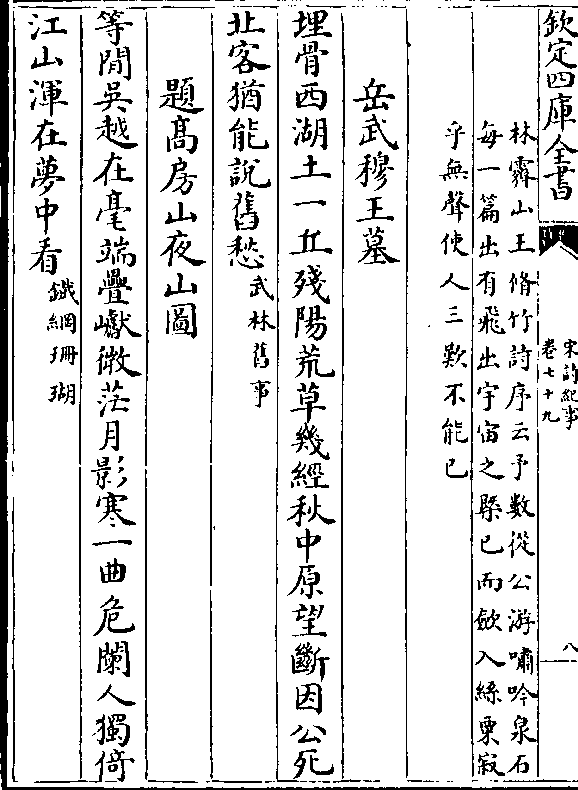 欽定四庫全書
宋詩紀事
卷七十九
八
林霽山王脩竹詩序云予數從公游嘯吟泉石
每一篇出有飛出宇宙之槩已而斂入絲粟寂
乎無聲使人三歎不能已
岳武穆王墓
埋骨西湖土一丘殘陽荒草幾經秋中原望斷因公死
北客猶能說舊愁武林舊事
題髙房山夜山圖
等閒吳越在毫端疊巘微茫月影寒一曲危闌人獨倚
江山渾在夢中看鐵網珊瑚